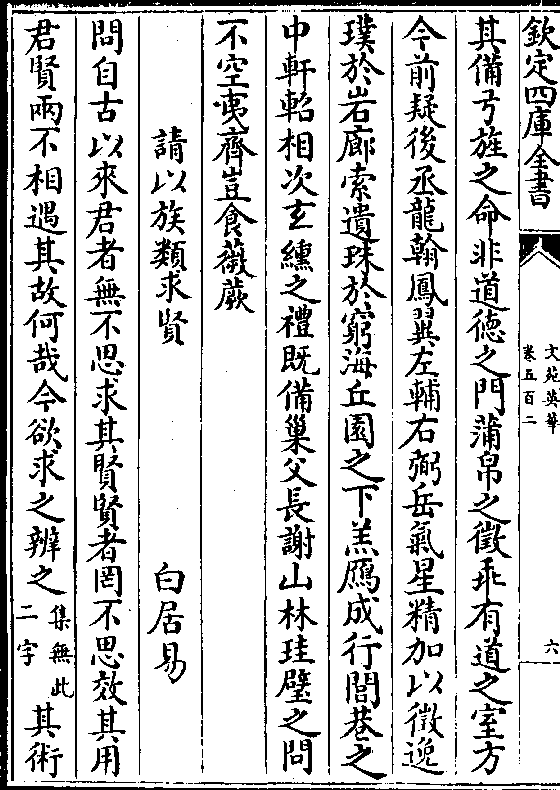 欽定四庫全書
文苑英華
卷五百二
六
其備弓旌之命非道德之門蒲帛之徵乖有道之室方
今前疑後丞龍翰鳳翼左輔右弼岳氣星精加以徵逸
璞於岩廊索遺珠於窮海丘園之下羔鴈成行閭巷之
中軒軺相次玄纁之禮既備巢父長謝山林珪璧之問
不空夷齊豈食薇蕨
請以族類求賢
白居易
問自古以來君者無不思求其賢賢者罔不思效其用
君賢兩不相遇其故何哉今欲求之辨之集無此二字其術